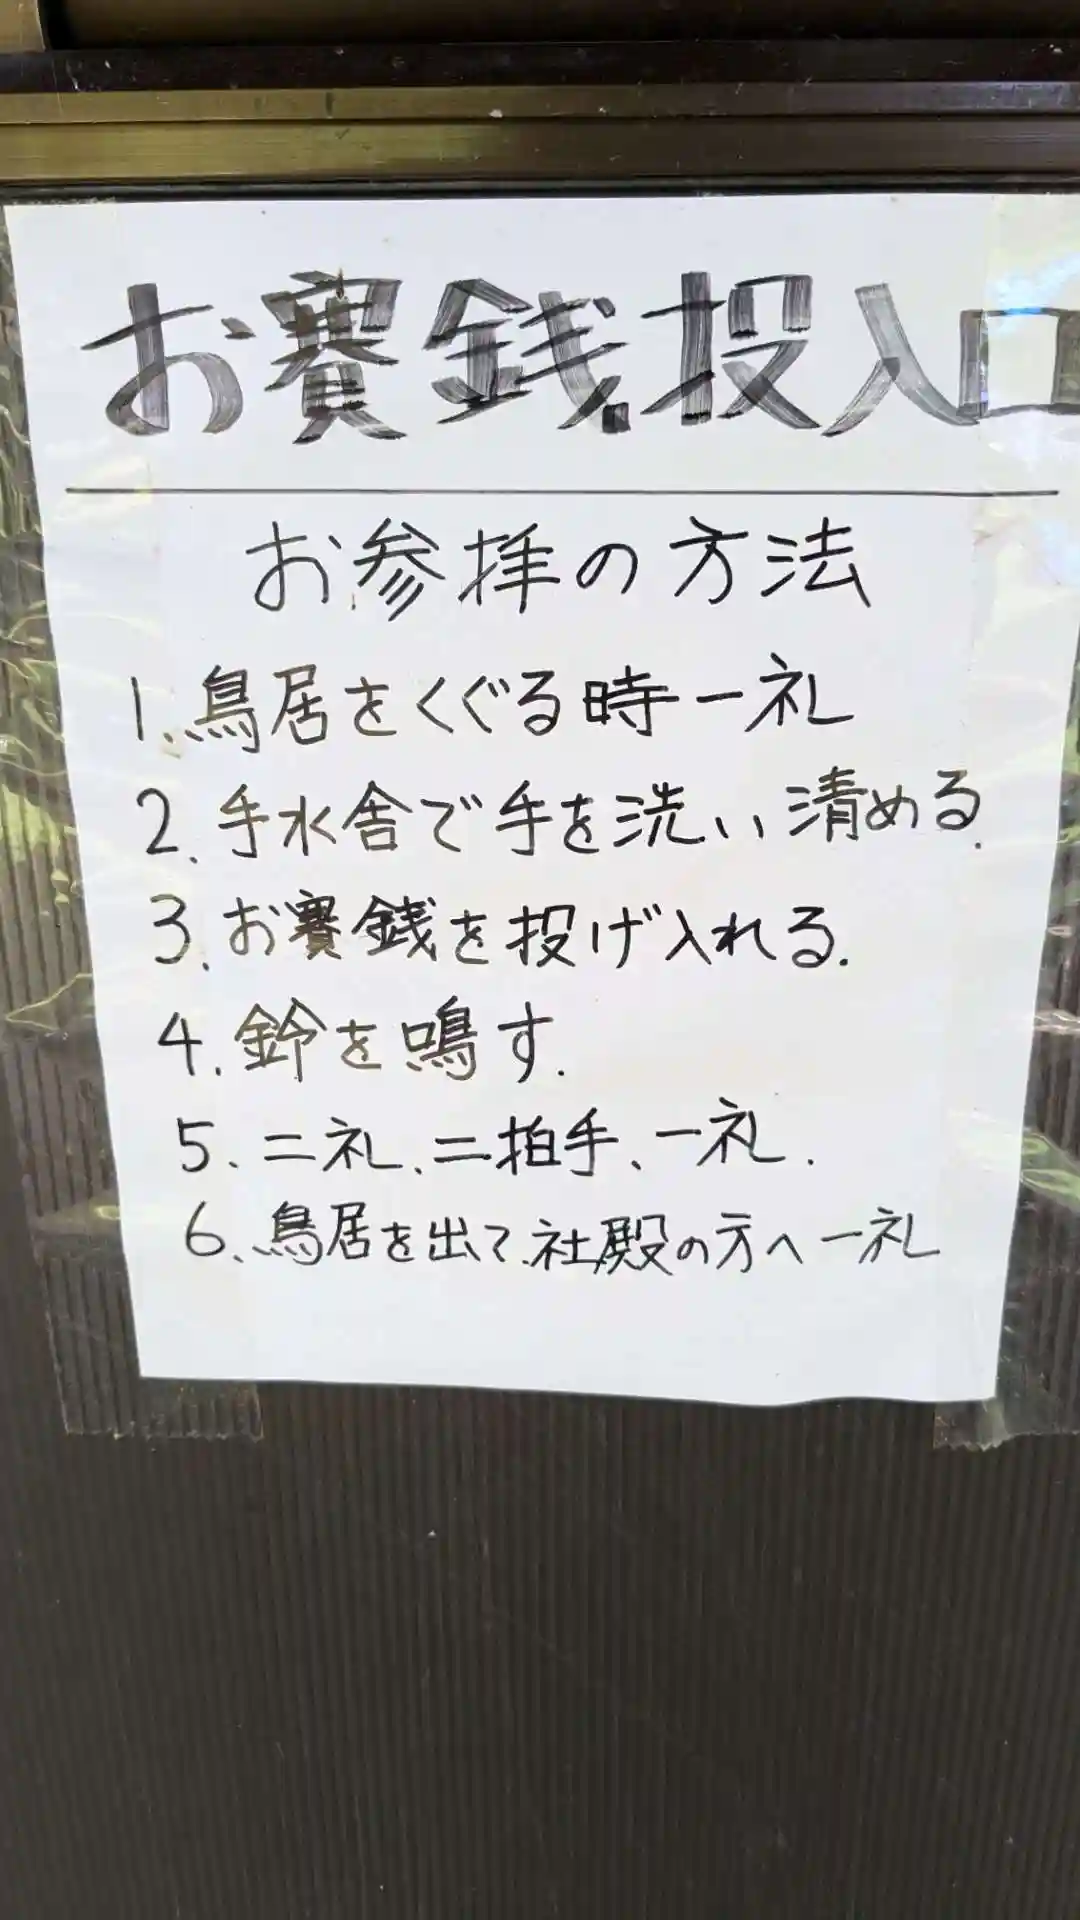 お賽銭投入口
お参拝の方法
1. 鳥居をくぐる時一礼
2. 手水舎で手を洗い清める.
3. お賽銭を投げ入れる.
4. 鈴を鳴す.
5. 二礼、二拍手、一礼.
6. 鳥居を出て、社殿の方へ一礼